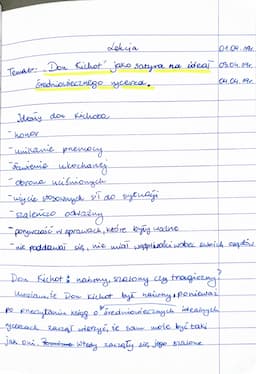 Lekcja 01.04.19r.
Temat: „Don Kichot" jako satyra na ideał 03.04.19r.
średniowiecznego rycerza. 04.04.19r.
Ideały don Kichota
- honor
- unikanie przemocy
- imienia ukochanej
- obrona uciśnionych
- użycie stosownych sił do sytuacji
- szaleńczo odważny
- porywczość w sprawach, które były ważne
- nie poddawał się, nie miał wątpliwości wobec swoich osądów
Don Kichot: naiwny, szalony czy tragiczny?
Uważam, że Don Kichot był naiwny, ponieważ
po przeczytaniu ksiąg o średniowiecznych idealnych
rycerzach zaczął wierzyć, że sam może być taki
jak oni. Wtedy zaczęły się jego szalone